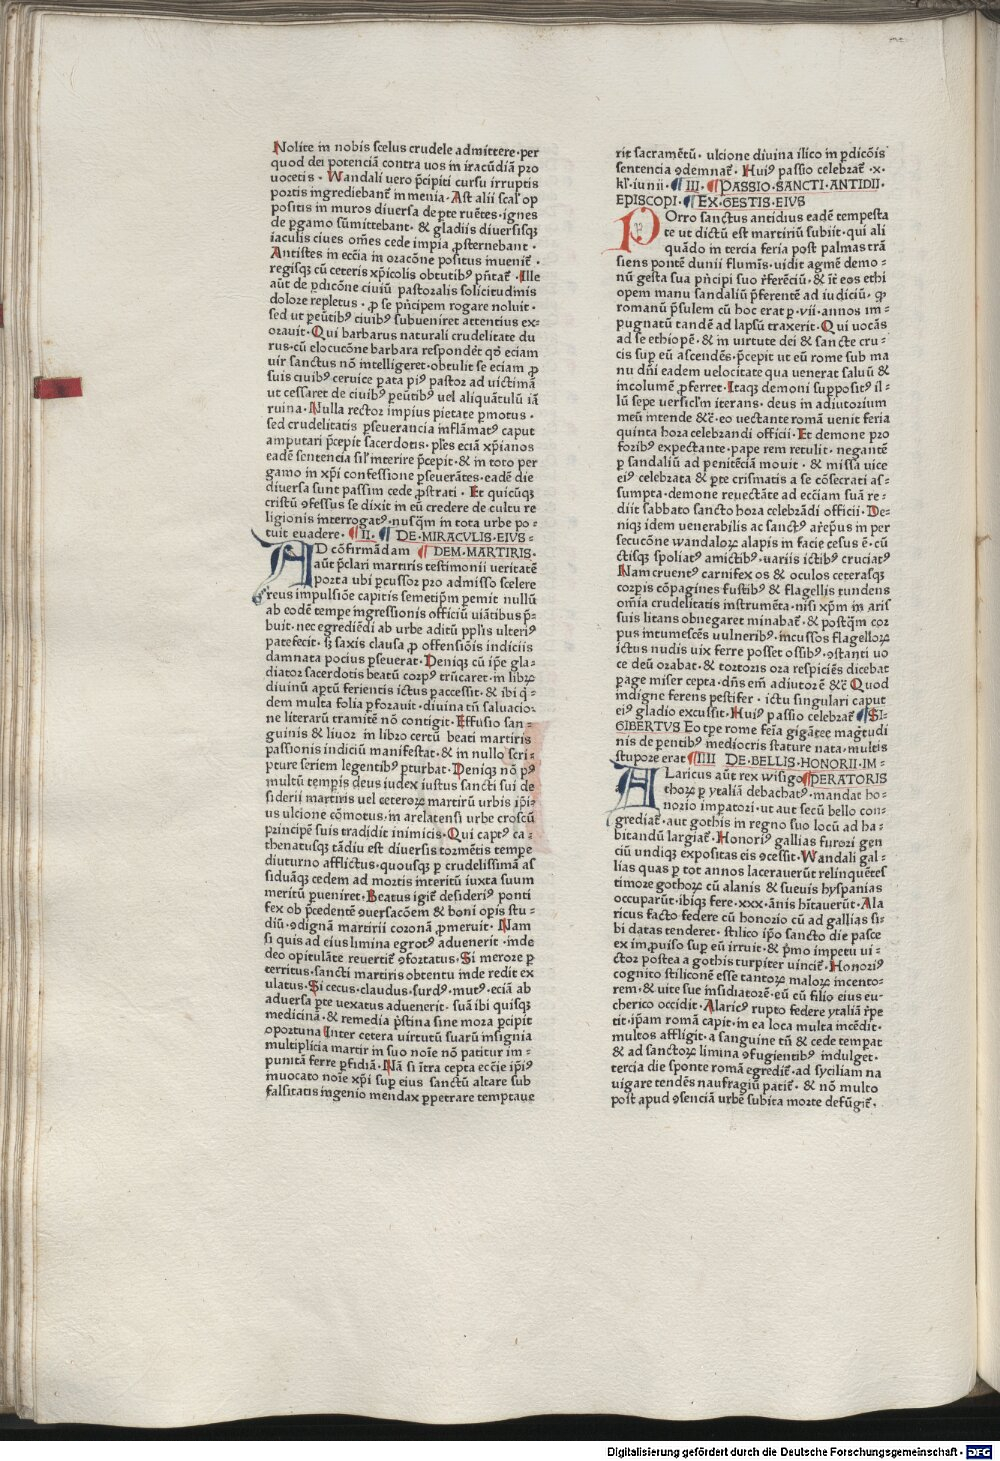 Nolite in nobis scelus crudele admittere·per
quod dei potenciā contra uos in iracūdiā pro
uocetis· Wandali uero p̄cipiti cursu irruptis
portis ingrediebant᷑ in menia·Ast alii scal᷑ op
positis in muros diuersa de ꝑte ruētes·ignes
de ꝑgamo sūmittebant·& gladiis diuersisqꝫ
iaculis ciues om̄es cede impia ꝓsternebant·
Antistes in ecc̄ia in oracōne positus inuenit᷑·
regisqꝫ cū ceteris xp̄icolis obtutibꝰ pn̄tat᷑·Ille
aūt de ꝑdicōne ciuiū pastoralis solicitudinis
dolore repletus·ꝓ se pn̄cipem rogare noluit·
sed ut ꝑeūtibꝰ ciuibꝰ subueniret attentius ex-
orauit·Qui barbarus naturali crudelitate du
rus·cū elocucōne barbara respondēt qđ eciam
uir sanctus nō intelligeret·obtulit se eciam ꝓ
suis ciuibꝰ ceruice ꝑata piꝰ pastor ad uictimā
ut cessaret de ciuibꝰ ꝑeūtibꝰ uel aliquātulū iā
ruina·Nulla rector impius pietate ꝑmotus·
sed crudelitatis ꝑseuerancia inflāmatꝰ caput
amputari p̄cepit sacerdotis·ꝑles eciā xp̄ianos
eadē sentencia sil᷑ interire p̄cepit·& in toto per
gamo in xp̄i confessione ꝑseuerātes·eadē die
diuersa sunt passim cede ꝓstrati· Et quicūqꝫ
cristū ꝯfessus se dixit in eū credere de cultu re
ligionis interrogatꝰ·nusq̄m in tota urbe po-
tuit euadere· II· DE·MIRACVLIS·EIVS-
AD cōfirmādam DEM·MARTIRIS·
aūt p̄clari martiris testimonii ueritatē
porta ubi ꝑcussor pro admisso scelere
reus impulsiōe capitis semetip̄m ꝑemit nullū
ab eodē tempe ingressionis officiū uiātibus p̄-
buit·nec egrediēdi ab urbe aditū ppl̄is ulteriꝰ
patefecit·sꝫ saxis clausa ꝓ offensiōis indiciis
damnata pocius ꝑseuerat·Deniqꝫ cū ip̄e gla-
diator sacerdotis beatū corpꝰ trūcaret·in librꝫ
diuinū aꝑtū ferientis ictus paccessit·& ibi q̇-
dem multa folia ꝑforauit·diuina tn̄ saluacio-
ne literarū tramitē nō contigit·Effusio san-
guinis & liuor in libro certū beati martiris
passionis indiciū manifestat·& in nullo scri-
pture seriem legentibꝰ ꝑturbat·Deniqꝫ nō pꝰ
multū tempis deus iudex iustus sancti sui de
siderii martiris uel ceterorꝫ martirū urbis ip̄i-
us ulcione cōmotus·in arelatensi urbe croscū
principē suis tradidit inimicis·Qui captꝰ ca-
thenatusqꝫ tādiu est diuersis tormētis tempe
diuturno afflictus·quousqꝫ ꝑ crudelissimā as
siduāqꝫ cedem ad mortis interitū iuxta suum
meritū ꝑueniret·Beatus igit᷑ desideriꝰ ponti
fex ob p̄cedentē ꝯuersacōem & boni opis stu-
diū·ꝯdignā martirii coronā ꝓmeruit· Nam
si quis ad eius limina egrotꝰ aduenerit·inde
deo opitulāte reuertit᷑ ꝯfortatus·Si merore ꝑ
territus·sancti martiris obtentu inde redit ex
ulatus·Si cecus·claudus·surdꝰ·mutꝰ·eciā ab
aduersa ꝑte uexatus aduenerit·suā ibi quisqꝫ
medicinā·& remedia p̄stina sine mora ꝑcipit
oportuna Inter cetera uirtutū suarū insignia
multiplicia martir in suo noīe nō patitur im-
punitā ferre ꝑfidiā·Nā si ītra cepta ecc̄ie ip̄iꝰ
inuocato noīe xp̄i suꝑ eius sanctū altare sub
falsitatis ingenio mendax ꝑpetrare temptaue
rit sacramētū· ulcione diuina ilico in ꝑdicōis
sentencia ꝯdemnat᷑· Huiꝰ passio celebrat᷑·x·
kl᷑·iunii· III· PASSIO·SANCTI·ANTIDII·
EPISCOPI· EX·GESTIS·EIVS
POrro sanctus antidius eadē tempesta
te ut dictū est martiriū subiit·qui ali
quādo in tercia feria post palmas trā
siens pontē dunii flumīs·uidit agmē demo-
nū gesta sua pn̄cipi suo r̄ferēciū·& īt᷑ eos ethi
opem manu sandaliū p̄ferentē ad iudiciū· ꝙ
romanū p̄sulem cū hoc erat ꝑ·vii·annos im-
pugnatū tandē ad lapsū traxerit·Qui uocās
ad se ethiopē·& in uirtute dei & sancte cru-
cis suꝑ eū ascendēs·p̄cepit ut eū rome sub ma
nu dn̄i eadem uelocitate qua uenerat saluū &
incolumē ꝓferret·Itaqꝫ demoni suppositꝰ il-
lū sepe uersicl᷑m iterans·deus in adiutorium
meū intende &c̄·eo uectante romā uenit feria
quinta hora celebrandi officii·Et demone pro
foribꝰ expectante·pape rem retulit·negantē
ꝑ sandaliū ad penitēciā mouit· & missa uice
eiꝰ celebrata & ꝑte crismatis a se cōsecrati as-
sumpta·demone reuectāte ad ecc̄iam suā re-
diit sabbato sancto hora celebrādi officii·De-
niqꝫ idem uenerabilis ac sanctꝰ arep̄us in per
secucōne wandalorꝫ alapis in facie cesus ē·cū
ctisqꝫ spoliatꝰ amictibꝰ·uariis ictibꝰ cruciatꝰ
Nam cruentꝰ carnifex os & oculos ceterasqꝫ
corpis cōpagines fustibꝰ & flagellis tundens
om̄ia crudelitatis instrumēta·nisi xp̄m in aris
suis litans obnegaret minabat᷑·& postq̄m cor
pus intumescēs uulneribꝰ·incussos flagellorꝫ
ictus nudis uix ferre posset ossibꝰ·ꝯstanti uo
ce deū orabat·& tortoris ora respiciēs dicebat
ꝑage miser cepta·dn̄s em̄ adiutor ē &c̄ Quod
indigne ferens pestifer· ictu singulari caput
eiꝰ gladio excussit·Huiꝰ passio celebrat᷑ SI-
GIBERTVS Eo tꝑe rome feīa gigātee magtudi
nis de ꝑentibꝰ mediocris stature nata·multis
stupore erat IIII DE·BELLIS·HONORII·IM-
ALaricus aūt rex wisigo PERATORIS
thorꝫ ꝑ ytaliā debachatꝰ·mandat ho-
norio impatori·ut aut secū bello con-
grediat᷑·aut gothis in regno suo locū ad ha-
bitandū largiat᷑·Honoriꝰ gallias furori gen
ciū undiqꝫ expositas eis ꝯcessit·Wandali gal-
lias quas ꝑ tot annos lacerauerūt relinquētes
timore gothorꝫ cū alanis & sueuis hyspanias
occuparūt·ibiqꝫ fere·xxx·ānis hītauerūt·Ala
ricus facto federe cū honorio cū ad gallias si-
bi datas tenderet·stilico ip̄o sancto die pasce
ex imꝓuiso suꝑ eū irruit·& p̄mo impetu ui-
ctor postea a gothis turpiter uincit᷑·Honoriꝰ
cognito stiliconē esse tantorꝫ malorꝫ incento-
rem·& uite sue insidiatorē·eū cū filio eius eu-
cherico occidit·Alaricꝰ rupto federe ytaliā r̄pe
tit·ip̄am romā capit·in ea loca multa incēdit·
multos affligit·a sanguine tn̄ & cede tempat
& ad sanctorꝫ limina ꝯfugientibꝰ indulget·
tercia die sponte romā egredit᷑·ad syciliam na
uigare tendēs naufragiū patit᷑·& nō multo
post apud ꝯsenciā urbē subita morte defūgit᷑·
Digitalisierung gefördert durch die Deutsche Forschungsgemeinschaft - DFG